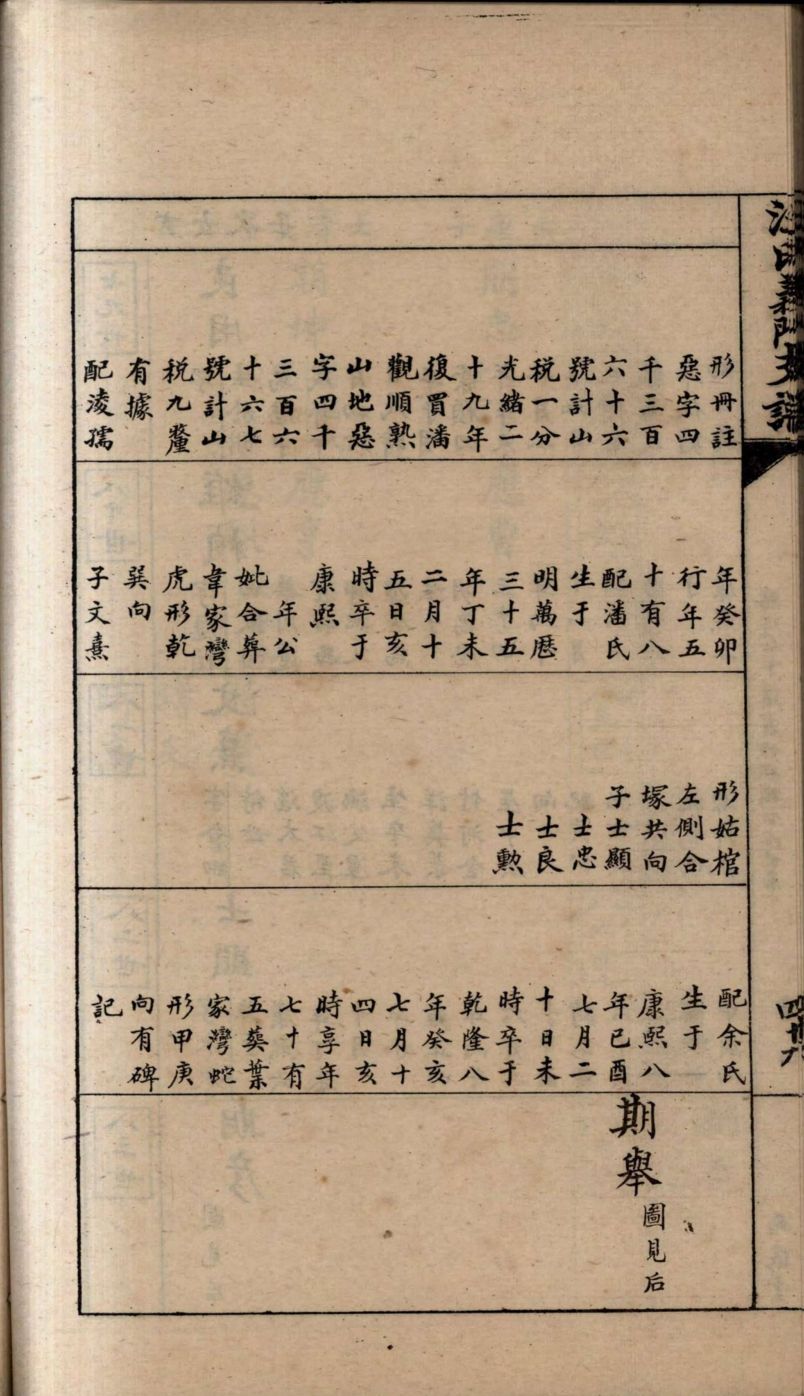 形冊註
惡字四
千三百
六十六
號計山
税一分
光緒二
十九年
復買潘
觀順熟
山地惡
字四千
三百六
十六七
號計山
税九釐
有據
配淩孺
年癸卯
行年五
十有八
配潘氏
生于
明萬厯
三十五
年丁未
二月十
五日亥
時卒于
康熙
年公
妣合葬
韋家灣
虎形乾
巽向
子文熹
形姑棺
左側合
塚共向
子士顯
士忠
士良
士勲
配余氏
生于
康熙八
年已酉
七月二
十日未
時卒于
乾隆八
年癸亥
七月十
四日亥
時享年
七十有
五葬葉
家灣蛇
形甲庚
向有碑
記
期舉
圖見后